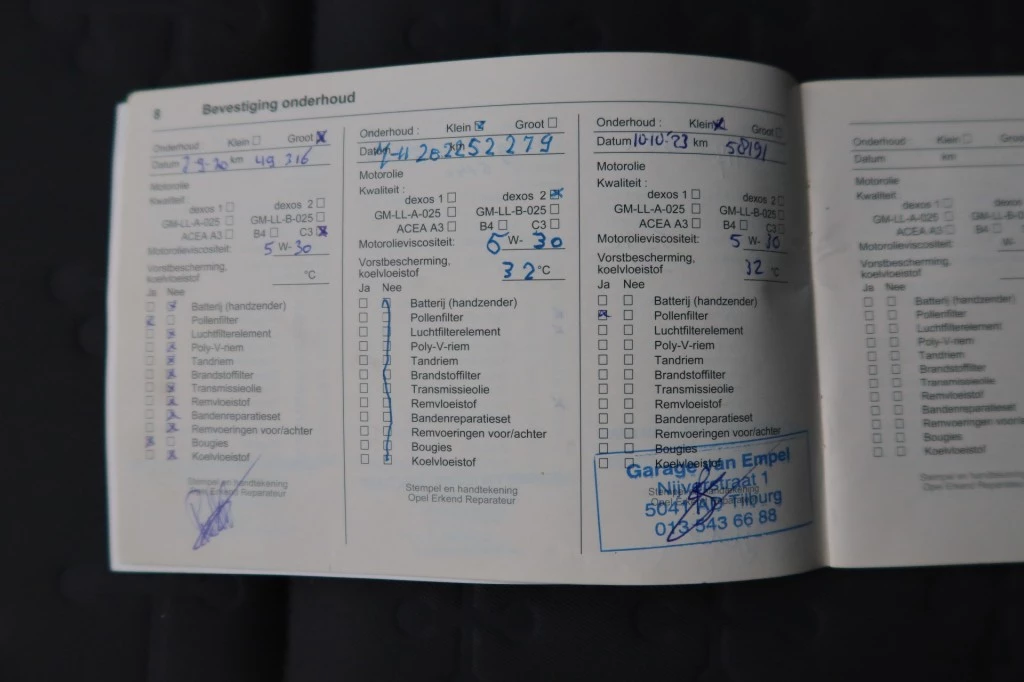 8 Bevestiging onderhoud
Onderhoud : Klein Groot
Datum 2-9-20 km 49 316
Motorolie
Kwaliteit :
dexos 1 dexos 2
GM-LL-A-025 GM-LL-B-025
ACEA A3 B4 C3
Motorolieviscositeit: 5 W- 30
Vorstbescherming,
koelvloeistof °C
Ja Nee
Batterij (handzender)
Pollenfilter
Luchtfilterelement
Poly-V-riem
Tandriem
Brandstoffilter
Transmissieolie
Remvloeistof
Bandenreparatieset
Remvoeringen voor/achter
Bougies
Koelvloeistof
Stempel en handtekening
Opel Erkend Reparateur
Onderhoud : Klein Groot
Datum km 52 279
Motorolie
Kwaliteit :
dexos 1 dexos 2
GM-LL-A-025 GM-LL-B-025
ACEA A3 B4 C3
Motorolieviscositeit: 5 W- 30
Vorstbescherming,
koelvloeistof 32 °C
Ja Nee
Batterij (handzender)
Pollenfilter
Luchtfilterelement
Poly-V-riem
Tandriem
Brandstoffilter
Transmissieolie
Remvloeistof
Bandenreparatieset
Remvoeringen voor/achter
Bougies
Koelvloeistof
Stempel en handtekening
Opel Erkend Reparateur
Onderhoud : Klein Groot
Datum 10-10-'23 km 58191
Motorolie
Kwaliteit :
dexos 1 dexos 2
GM-LL-A-025 GM-LL-B-025
ACEA A3 B4 C3
Motorolieviscositeit: 5 W- 30
Vorstbescherming,
koelvloeistof 32 °C
Ja Nee
Batterij (handzender)
Pollenfilter
Luchtfilterelement
Poly-V-riem
Tandriem
Brandstoffilter
Transmissieolie
Remvloeistof
Bandenreparatieset
Remvoeringen voor/achter
Bougies
Koelvloeistof
Stempel en handtekening
Opel Erkend Reparateur
Garage van Empel
Nijverstraat 1
5041 Tilburg
013 543 66 88
Onderhoud : Klein
Datum km
Motorolie
Kwaliteit :
dexos 1
GM-LL-A-025
ACEA A3 B4
Motorolieviscositeit: W-
Vorstbescherming,
koelvloeistof
Ja Nee
Batterij (handzender)
Pollenfilter
Luchtfilterelement
Poly-V-riem
Tandriem
Brandstoffilter
Transmissieolie
Remvloeistof
Bandenreparatieset
Remvoeringen
Bougies
Koelvloeistof
Stempel en handtekening
Opel Erkend Reparateur